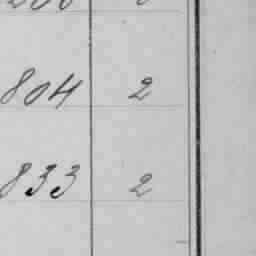 804 2
833 2